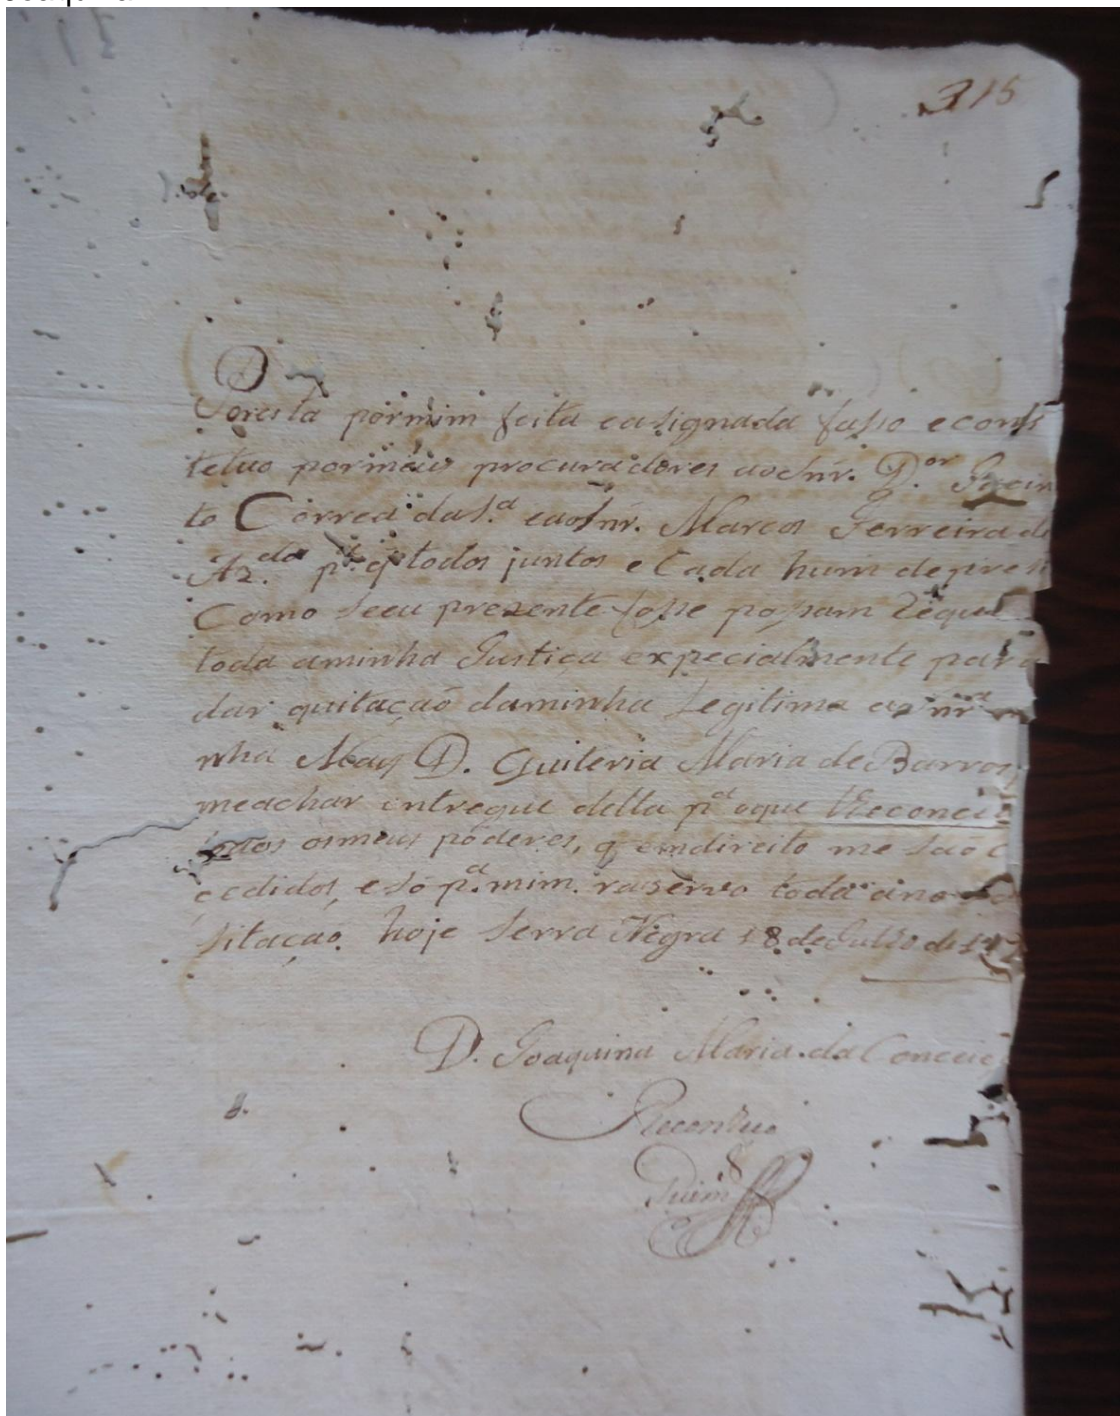 315
Por esta por mim feita e asignada fasso e cons
tetuo por meus procuradores ao Snr. D.or Jacin
to Correa da S.a e ao Snr. Marcos Ferreira de
Az.do p.a q todos juntos e Cada hum de per si
Como se eu prezente fosse possam Requer
toda a minha Justiça expecialmente para
dar quitação da minha Legitima a Snr.a mi
nha May D. Quiteria Maria de Barros
me achar entregue della p.a o que
todos os meus poderes, q em direito me sao c
cedidos, e só p.a mim. raservo toda a nova
sitação, hoje Serra Negra 18 de Julho de 17
D. Joaquina Maria da Conceic
Reconheço
Guim.s